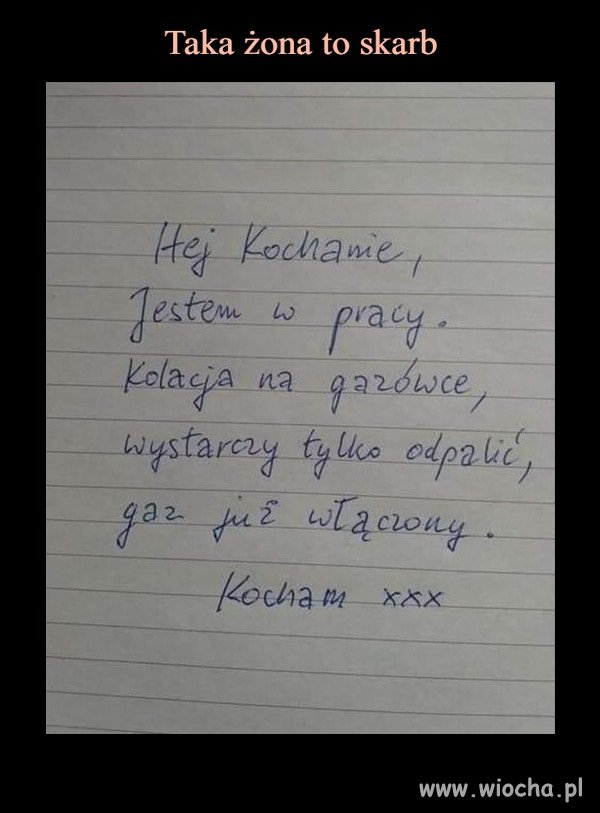 Taka żona to skarb
Hej Kochanie,
Jestem w pracy.
Kolacja na gazówce,
wystarczy tylko odpalić,
gaz już włączony.
Kocham xxx
www.wiocha.pl